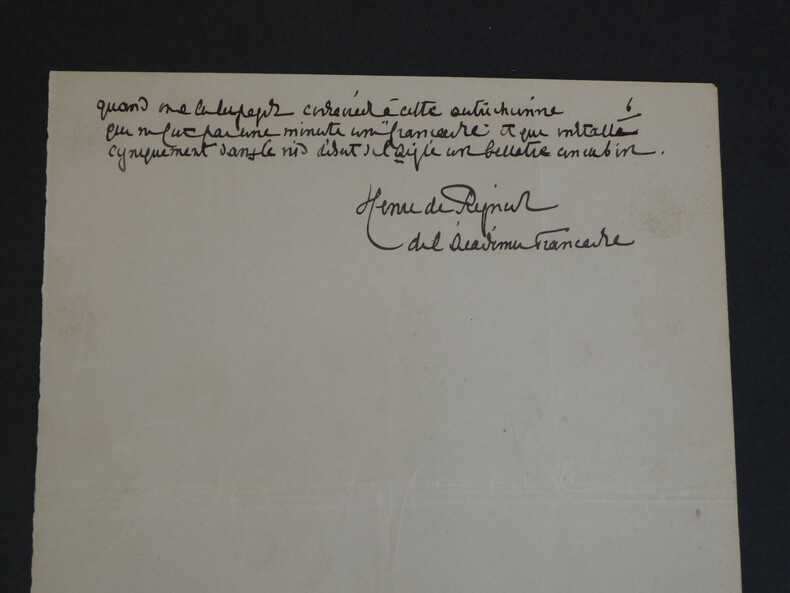 6
quand on a lu les pages consacrées à cette autrichienne
qui ne fut pas une minute une "française" et qui installa
cyniquement dans le nid désert de l'Aigle son bellâtre
Henri de Régnier
de l'Académie Française